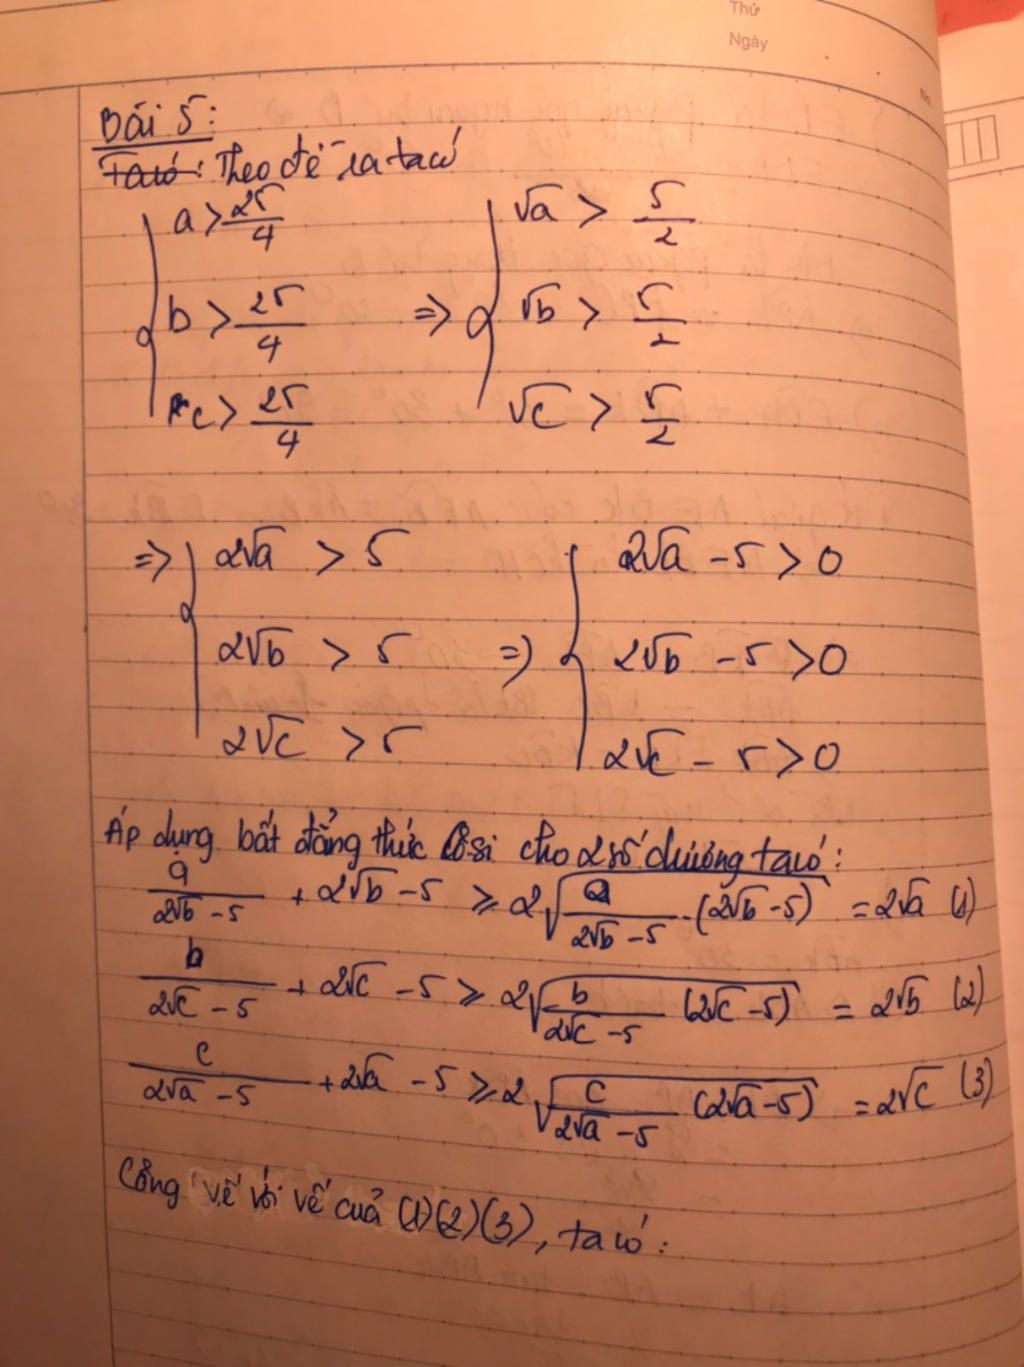 Thứ
Ngày
No.
Bài 5:
Ta có: Theo đề ra ta có
a > 25/4 √a > 5/2
b > 25/4 => √b > 5/2
c > 25/4 √c > 5/2
=> 2√a > 5 2√a - 5 > 0
2√b > 5 => 2√b - 5 > 0
2√c > 5 2√c - 5 > 0
Áp dụng bất đẳng thức Cosi cho 2 số dương ta có:
a/(2√b - 5) + 2√b - 5 ≥ 2√(a/(2√b - 5) · (2√b - 5)) = 2√a (1)
b/(2√c - 5) + 2√c - 5 ≥ 2√(b/(2√c - 5) (2√c - 5)) = 2√b (2)
c/(2√a - 5) + 2√a - 5 ≥ 2√(c/(2√a - 5) (2√a - 5)) = 2√c (3)
Cộng vế với vế của (1)(2)(3), ta có: